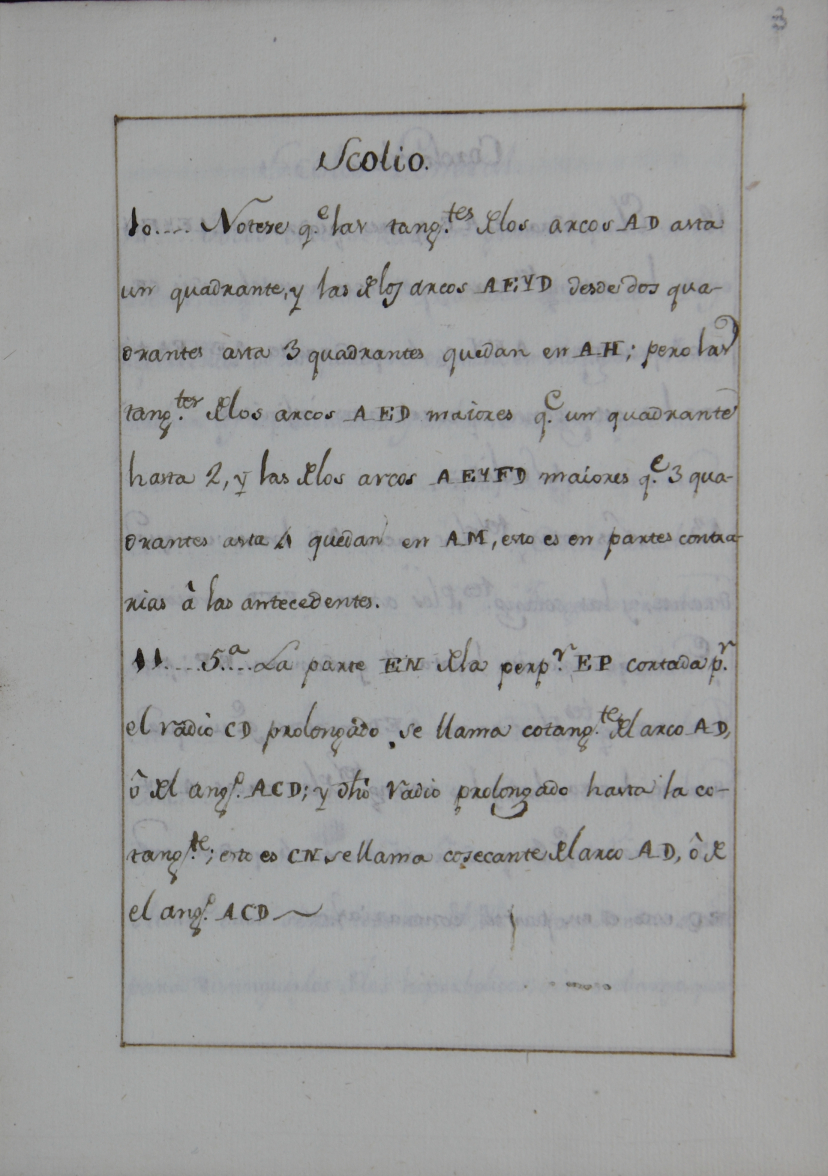 3
Scolio.
10.... Notese q.e las tang.tes de los arcos AD asta
un quadrante, y las de los arcos AEYD desde dos qua-
drantes asta 3 quadrantes quedan en AH; pero las
tang.tes de los arcos AED maiores q.e un quadrante
hasta 2, y las de los arcos AEYFD maiores q.e 3 qua-
drantes asta 4 quedan en AM, esto es en partes contra-
rias à las antecedentes.
11.... 5.a... La parte EN de la perp.r EP cortada p.r
el radio CD prolongado, se llama cotang.te del arco AD,
ô del ang.o ACD; y dho radio prolongado hasta la co-
tang.te; esto es CN se llama cosecante del arco AD, ô de
el ang.o ACD